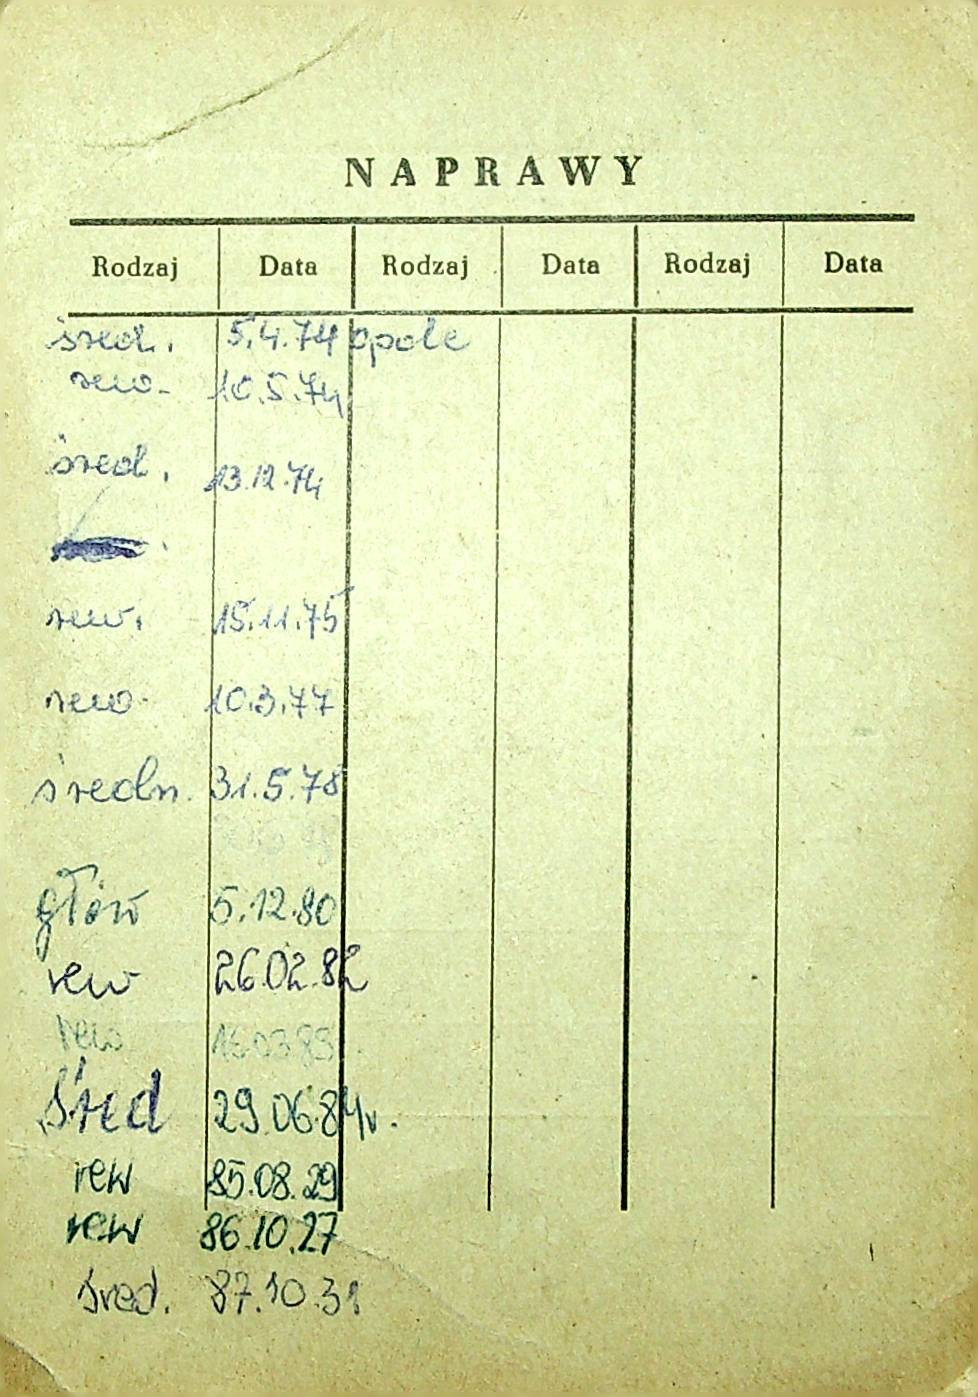 NAPRAWY
Rodzaj Data Rodzaj Data Rodzaj Data
śred. 5.4.74 opole
rew. 10.5.74
śred. 13.12.74
rew. 15.11.75
rew. 10.3.77
średn. 31.5.78
głów 5.12.80
rew 26.02.82
rew 16.03.83
Śred 29.06.84r.
rew 85.08.29
rew 86.10.27
śred. 87.10.31